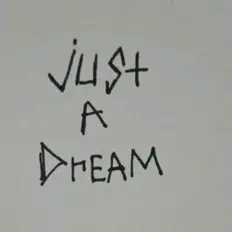 just
A
DrEAM